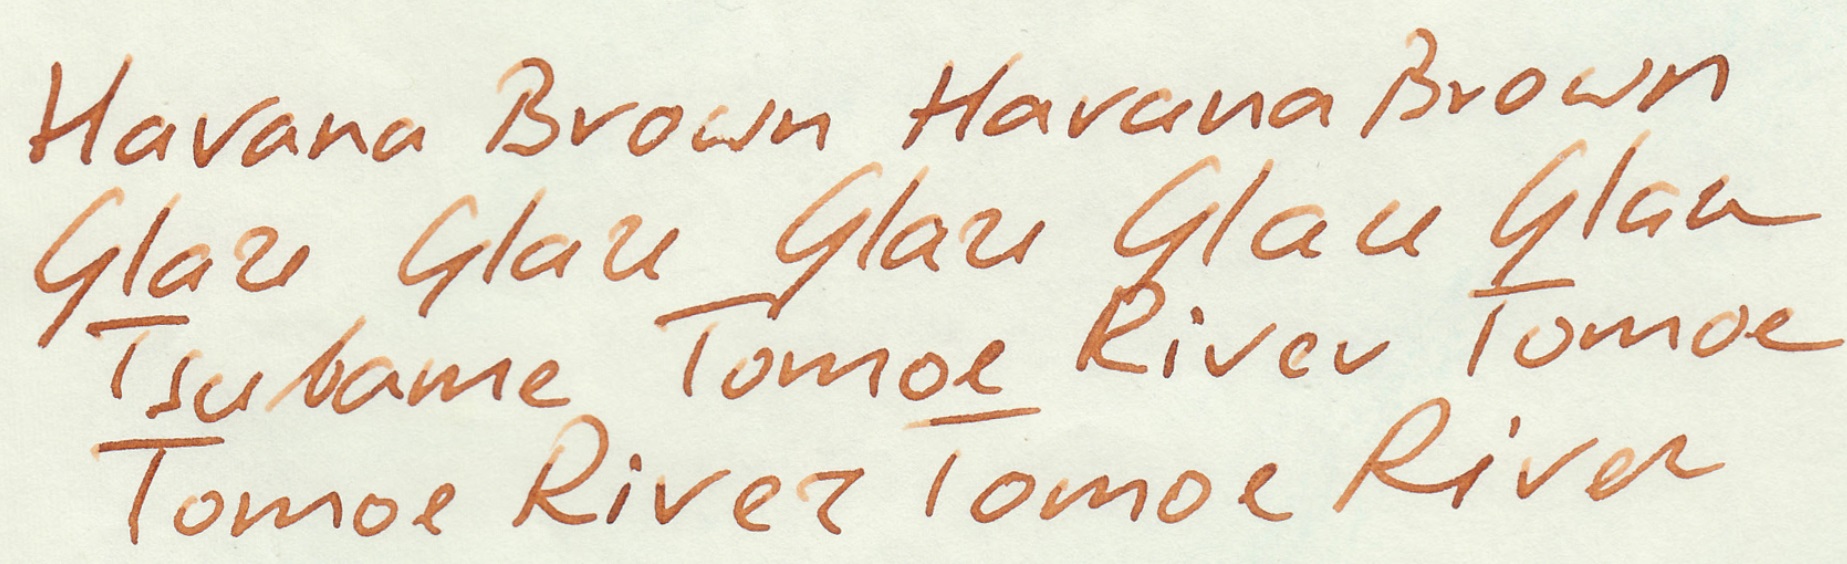 Havana Brown Havana Brown
Glaze Glaze Glaze Glaze Glaze
Tsubame Tomoe River Tomoe
Tomoe River Tomoe River